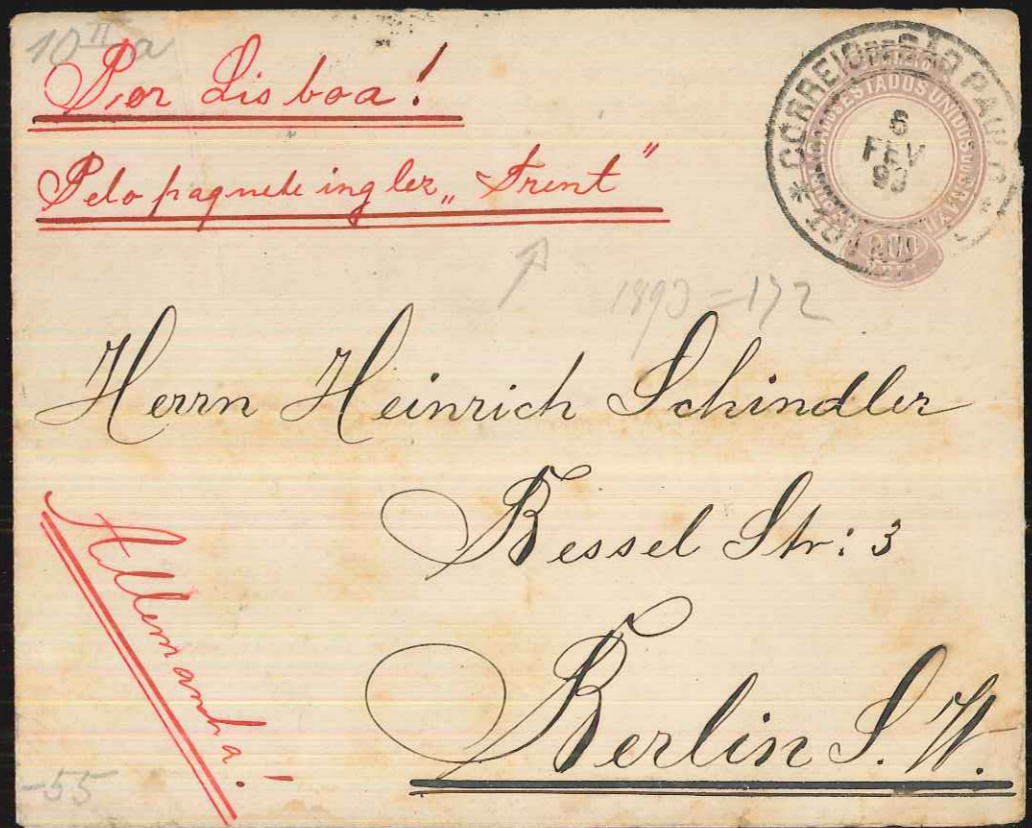 10 II a
Por Lisboa!
Pelo paquete inglez „Trent"
CORREIO SÃO PAULO
ESTADOS UNIDOS DO BRAZIL
6
FEV
93
200
1890 = 172
Herrn Heinrich Schindler
Bessel Str: 3
Berlin S. W.
Allemanha!
-55